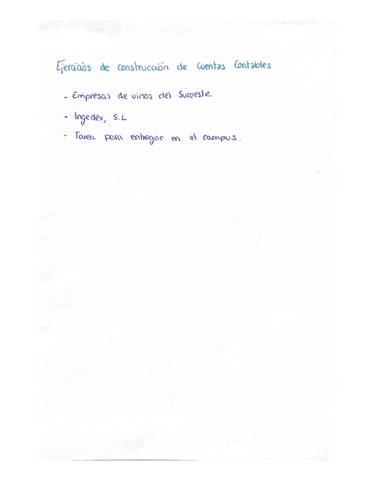 Ejercicios de construcción de Cuentas Contables
- Empresas de vinos del Suroeste.
- Ingedex, S.L
- Tarea para entregar en el campus.